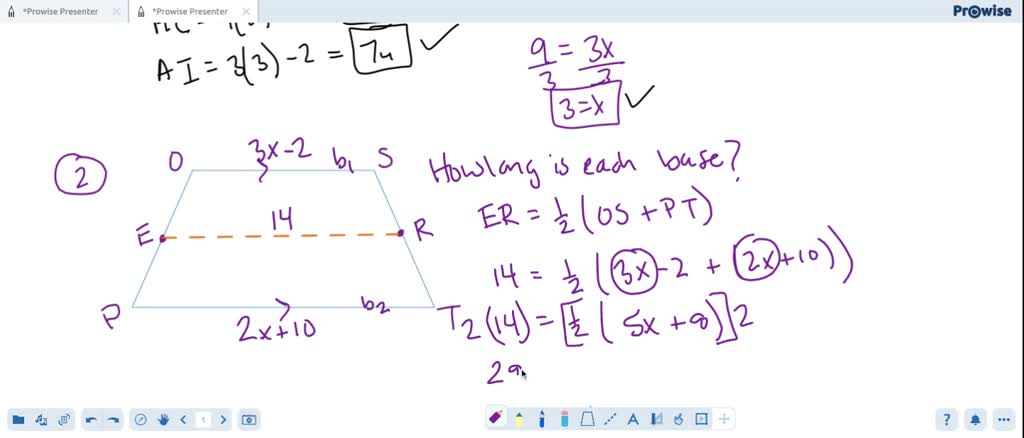 *Prowise Presenter
*Prowise Presenter
Prowise
AI = 3(3) - 2 = 7u ✓
9 = 3x
3 3
3 = x ✓
2
O 3x - 2 b₁ S
E 14 R
P 2x + 10 b₂ T
How long is each base?
ER = ½ (OS + PT)
14 = ½ (3x - 2 + 2x + 10))
2 (14) = [½ ( 5x + 8)] 2
1
?